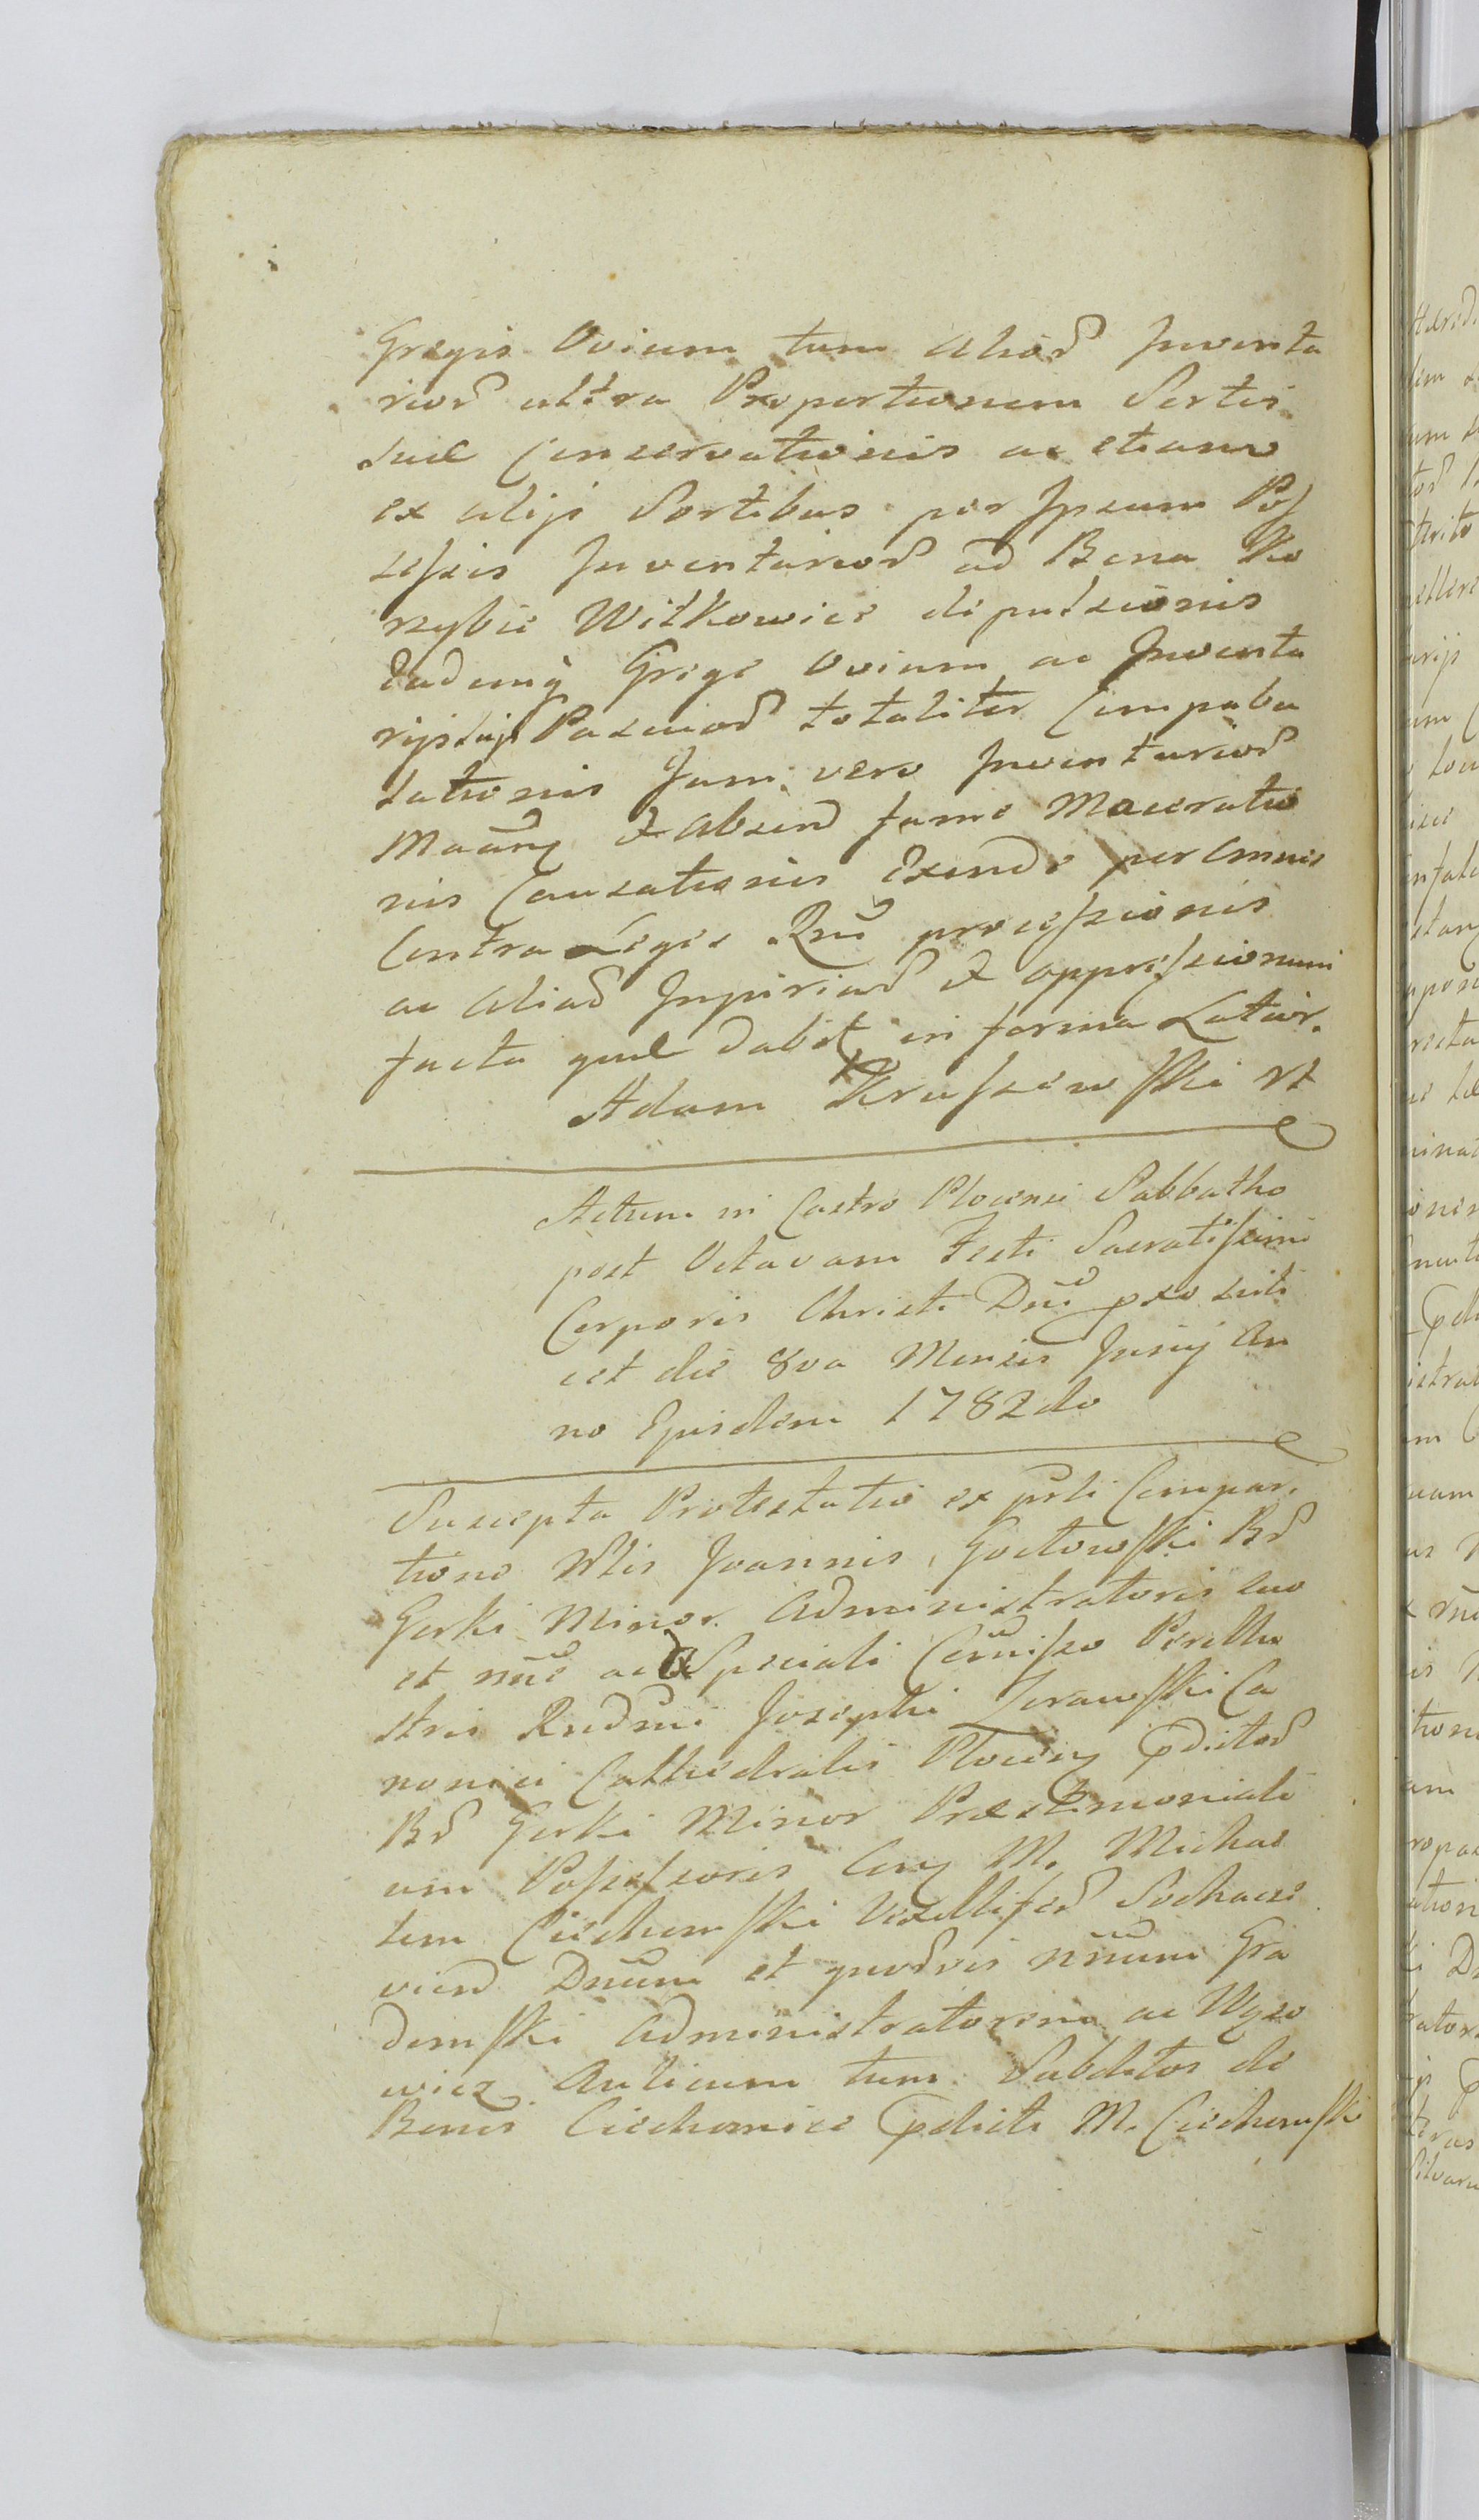 Gregis Ovium tum aliord Inventa
riord ultra Proportionem Sortis
suæ Conservationis ac etiam
ex alijs Sortibus per Ipsum Pos
sessis Inventariord ad Bona Ko
rzybie Witkowice depulsionis
Eademq Grege Ovium ac Inventa
rijs Pascuord totaliter Compabu
lationis Jam vero Inventariord
& absend fame Maceratio
nis Causationis Exinde per Omnis
Contra Leges Rni processionis
ac aliad Injuriad & oppressionum
facta quæ dabit in forma Latior.
Adam Krassewski
Actum in Castro Plocensi Sabbatho
post Octavam Festi Sacratissimi
Corporis Christi Dni proxiti
est die 8va Mensis Junij An
no Ejusdem 1782do
Suscepta Protestatio ex prti Compar.
tione Joannis Goctowski Bd
Gorki Minor. Administratoris suo
et nne ac Speciali Comisso Perillu
stris Rndmi Josephi Zorawski Ca
nonici Cathedralis Plocen pdictod
Bd Gorki Minor Præstimoniali
um Possessoris M. Michae
lem Ciechomski Vexilliferd Sochacz
viend Dnum et quodvis nnum Gra
domski Administratorem ac Wąso
wicz Aulicum tum Subditos de
Bonis Ciechomice pdicti M. Ciechomski